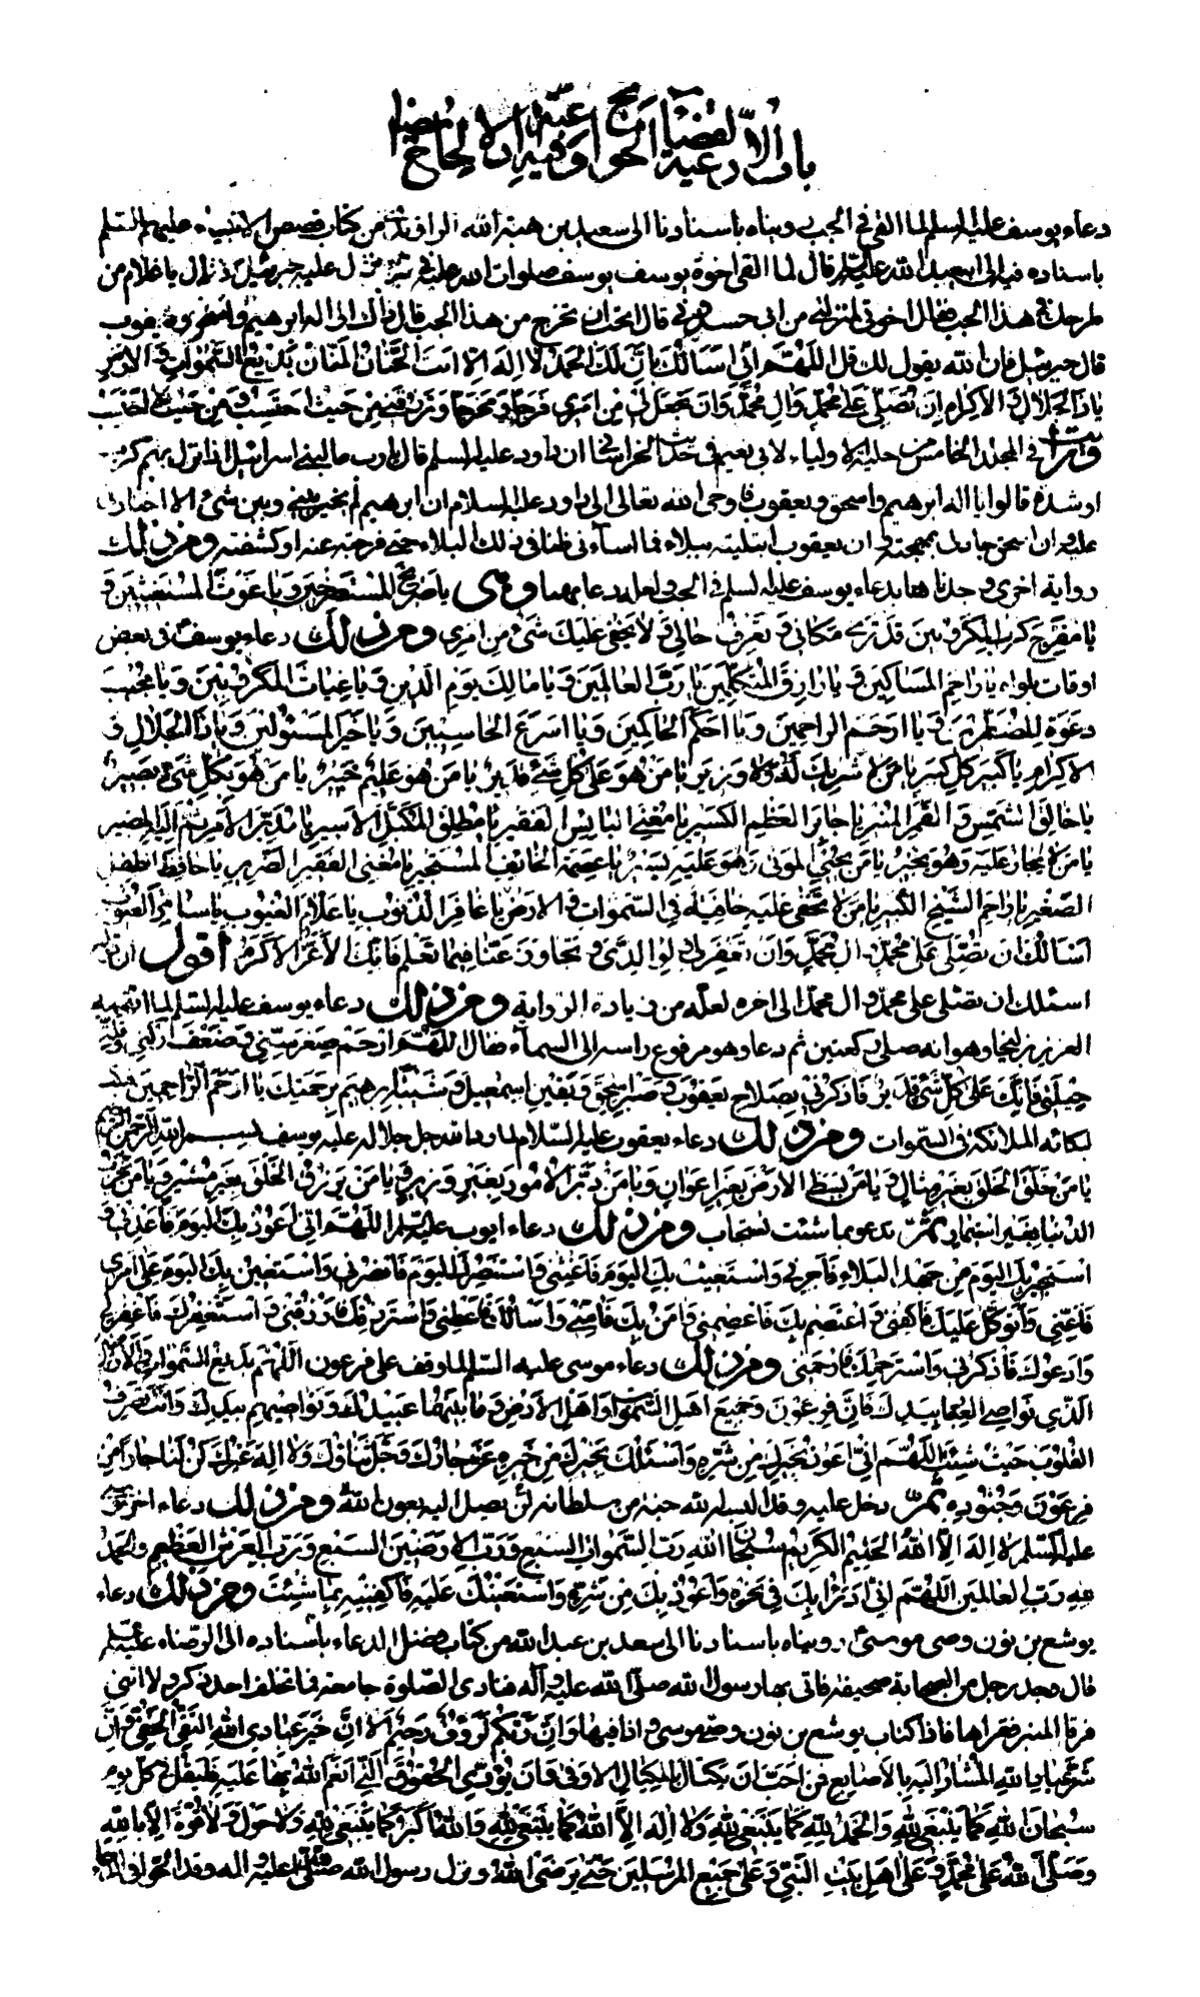 باب الأدعية لقضاء الحوائج وفيه أدعية الإلحاح
دعاء يوسف عليه السلم لما القى في الجب رويناه باسنادنا الى سعيد بن هبة الله الراوندي من كتاب قصص الانبياء عليهم السلم
باسناده فيه الى ابي عبد الله عليه السلم قال لما القى اخوة يوسف يوسف صلوات الله عليه في نزل عليه جبرئيل ذ قال يا غلام من
طرحك في هذا الجب فقال اخوتي لمنزلتي من ابي حسدوني قال اتحب ان تخرج من هذا الجب قال ذلك الى اله ابرهيم واسحق ويعقوب
قال جبرئيل فان الله يقول لك قل اَللّهُمَّ اِنّي اَسْاَلُكَ بِاَنَّ لَكَ الْحَمْدَ لا اِلهَ اِلّا اَنْتَ الْحَنّانُ الْمَنّانُ بَديعُ السَّمواتِ وَ الْاَرْضِ
يا ذَا الْجَلالِ وَ الْاِكْرامِ اَنْ تُصَلِّيَ عَلى مُحَمَّدٍ وَالِ مُحَمَّدٍ وَاَنْ تَجْعَلَ لي مِنْ اَمْري فَرَجاً وَمَخْرَجاً وَتَرْزُقَني مِنْ حَيْثُ اَحْتَسِبُ وَمِنْ حَيْثُ لا اَحْتَسِبُ
ورأيت في المجلد الخامس من حلية الاولياء لابي نعيم في حديث الخراساني ان داود عليه السلم قال يا رب ما لبني اسرائيل اذا نزل بهم كرب
او شدة قالوا يا اله ابرهيم واسحق ويعقوب فاوحى الله تعالى الى داود عليه السلام ان ابرهيم لم يخير بيني وبين شيء الا اختارني
عليه وان اسحق جاد لي بمهجته وان يعقوب ابتليته ببلاء فما اساء بي ظنا في ذلك البلاء حتى فرجته عنه او كشفته ومن ذلك
رواية اخرى وجدناها بدعاء يوسف عليه السلم في الجب لعله دعا بهما وهي يا صَريخَ الْمُسْتَصْرِخينَ وَيا غَوْثَ الْمُسْتَغيثينَ وَ
يا مُفَرِّجَ كَرْبِ الْمَكْروبينَ قَدْ تَرى مَكاني وَ تَعْرِفُ حالي وَ لا يَخْفى عَلَيْكَ شَيْءٌ مِنْ اَمْري ومن ذلك دعاء يوسف في بعض
اوقات بلواه يا راحِمَ الْمَساكينَ وَ يا رازِقَ الْمُتَكَلِّمينَ يا رَبَّ الْعالَمينَ وَ يا مالِكَ يَوْمِ الدّينِ وَ يا غِياثَ الْمَكْروبينَ وَ يا مُجيبَ
دَعْوَةِ الْمُضْطَرّينَ وَ يا اَرْحَمَ الرّاحِمينَ وَ يا اَحْكَمَ الْحاكِمينَ وَ يا اَسْرَعَ الْحاسِبينَ وَ يا خَيْرَ الْمَسْئُولينَ وَ يا ذَا الْجَلالِ وَ
الْاِكْرامِ يا كَبيرَ كُلِّ كَبيرٍ يا مَنْ لا شَريكَ لَهُ وَلا وَزيرَ يا مَنْ هُوَ عَلى كُلِّ شَيْءٍ قَديرٌ يا مَنْ هُوَ عَليمٌ خَبيرٌ يا مَنْ هُوَ بِكُلِّ شَيْءٍ بَصيرٌ
يا خالِقَ الشَّمْسِ وَ الْقَمَرِ الْمُنيرِ يا جابِرَ الْعَظْمِ الْكَسيرِ يا مُغْنِيَ الْبائِسِ الْفَقيرِ يا مُطْلِقَ الْمُكَبَّلِ الْاَسيرِ يا مُدَبِّرَ الْاَمْرِ ثُمَّ اِلَيْهِ الْمَصيرُ
يا مَنْ لا يُجارُ عَلَيْهِ وَهُوَ يُجيرُ يا مَنْ يُحْيِي الْمَوْتى وَ هُوَ عَلَيْهِ يَسيرٌ يا عِصْمَةَ الْخائِفِ الْمُسْتَجيرِ يا مُغْنِيَ الْفَقيرِ الضَّريرِ يا حافِظَ الطِّفْلِ
الصَّغيرِ يا راحِمَ الشَّيْخِ الْكَبيرِ يا مَنْ لا تَخْفى عَلَيْهِ خافِيَةٌ فِي السَّمواتِ وَ الْاَرْضِ يا غافِرَ الذُّنوبِ يا عَلّامَ الْغُيوبِ يا ساتِرَ الْعُيوبِ
اَسْاَلُكَ اَنْ تُصَلِّيَ عَلى مُحَمَّدٍ وَ الِ مُحَمَّدٍ وَاَنْ تَغْفِرَ لي وَلِوالِدَيَّ وَ تَجاوَزَ عَنّا فيما تَعْلَمُ فَاِنَّكَ الْاَعَزُّ الْاَكْرَمُ اقول ان قوله
اسئلك ان تصلي على محمد وال محمد الى اخره لعله من زيادة الرواية ومن ذلك دعاء يوسف عليه السلم لما اتهمه
العزيز بزليخا وهو انه صلى ركعتين ثم دعا وهو مرفوع راسه الى السماء فقال اَللّهُمَّ ارْحَمْ صِغَرَ سِنّي وَ ضَعْفَ رُكْني وَقِلَّةَ
حيلَتي فَاِنَّكَ عَلى كُلِّ شَيْءٍ قَديرٌ فَاذْكُرْني بِصَلاحِ يَعْقُوبَ وَ صَبْرِ اِسْحقَ وَ يَقينِ اِسْمعيلَ وَ شَيْبَةِ اِبْرهيمَ بِرَحْمَتِكَ يا اَرْحَمَ الرّاحِمينَ فبكت
لبكائه الملائكة في السموات ومن ذلك دعاء يعقوب عليه السلام لما رد الله جل جلاله عليه يوسف بسم الله الرحمن الرحيم
يا مَنْ خَلَقَ الْخَلْقَ بِغَيْرِ مِثالٍ وَ يا مَنْ بَسَطَ الْاَرْضَ بِغَيْرِ اَعْوانٍ وَيا مَنْ دَبَّرَ الْاُمُورَ بِغَيْرِ وَزيرٍ وَ يا مَنْ يَرْزُقُ الْخَلْقَ بِغَيْرِ مُشيرٍ وَ يا مَنْ يُخْرِبُ
الدُّنْيا بِغَيْرِ اسْتيمارٍ ثم تدعو بما شئت تستجاب ومن ذلك دعاء ايوب عليه السلم اَللّهُمَّ اِنّي اَعُوذُ بِكَ الْيَوْمَ فَاَعِذْني وَ
اَسْتَجيرُ بِكَ الْيَوْمَ مِنْ جَهْدِ الْبَلاءِ فَاَجِرْني وَاَسْتَغيثُ بِكَ الْيَوْمَ فَاَغِثْني وَ اَسْتَنْصِرُكَ الْيَوْمَ فَانْصُرْني وَاَسْتَعينُ بِكَ الْيَوْمَ عَلى اَمْري
فَاَعِنّي وَاَتَوَكَّلُ عَلَيْكَ فَاكْفِني وَ اَعْتَصِمُ بِكَ فَاعْصِمْني وَ امَنُ بِكَ فَامِنّي وَ اَسْاَلُكَ فَاَعْطِني وَ اَسْتَرْزِقُكَ فَارْزُقْني وَ اَسْتَغْفِرُكَ فَاغْفِرْ لي
وَ اَدْعُوكَ فَاذْكُرْني وَ اَسْتَرْحِمُكَ فَارْحَمْني ومن ذلك دعاء موسى عليه السلم لما وقف على فرعون اَللّهُمَّ بَديعَ السَّمواتِ وَ الْاَرْضِ
الَّذي نَواصِي الْعِبادِ بِيَدِكَ فَاِنَّ فِرْعَوْنَ وَ جَميعَ اَهْلِ السَّمواتِ وَ اَهْلِ الْاَرْضِ وَ ما بَيْنَهُما عَبيدُكَ وَ نَواصيهِمْ بِيَدِكَ وَ اَنْتَ تَصْرِفُ
الْقُلُوبَ حَيْثُ شِئْتَ اَللّهُمَّ اِنّي اَعُوذُ بِخَيْرِكَ مِنْ شَرِّهِ وَاَسْئَلُكَ بِخَيْرِكَ مِنْ خَيْرِهِ عَزَّ جارُكَ وَ جَلَّ ثَناؤُكَ وَلا اِلهَ غَيْرُكَ كُنْ لَنا جاراً مِنْ
فِرْعَوْنَ وَ جُنُودِهِ ثم دخل عليه وقد البسه الله جنة من سلطانه لن يصل اليه بعون الله ومن ذلك دعاء اخر لموسى
عليه السلم لا اِلهَ اِلَّا اللهُ الْحَليمُ الْكَريمُ سُبْحانَ اللهِ رَبِّ السَّمواتِ السَّبْعِ وَ رَبِّ الْاَرَضينَ السَّبْعِ وَ رَبِّ الْعَرْشِ الْعَظيمِ وَ الْحَمْدُ
لِلّهِ رَبِّ الْعالَمينَ اَللّهُمَّ اِنّي اَدْرَأُ بِكَ في نَحْرِهِ وَ اَعُوذُ بِكَ مِنْ شَرِّهِ وَ اَسْتَعينُكَ عَلَيْهِ فَاكْفِنيهِ بِما شِئْتَ ومن ذلك دعاء
يوشع بن نون وصي موسى رويناه باسنادنا الى سعد بن عبد الله من كتاب فضل الدعاء باسناده الى الرضا عليه السلم
قال وجد رجل من الصحابة صحيفة فاتى بها رسول الله صلى الله عليه واله فنادى الصلوة جامعة فما تخلف احد ذكر ولا انثى
فرقا المنبر فقراها فاذا كتاب يوشع بن نون وصي موسى واذا فيها وَاِنَّ رَبَّكُمْ لَرَؤُفٌ رَحيمٌ اَلا اِنَّ خَيْرَ عِبادِ اللهِ التَّقِيُّ الْخَفِيُّ وَ اِنَّ
شَرَّ عِبادِ اللهِ الْمُشارُ اِلَيْهِ بِالْاَصابِعِ فَمَنْ اَحَبَّ اَنْ يَكْتالَ بِالْمِكْيالِ الْاَوْفى وَ اَنْ يُؤَدِّيَ الْحُقُوقَ الَّتي اَنْعَمَ اللهُ بِها عَلَيْهِ فَلْيَقُلْ في كُلِّ يَوْمٍ
سُبْحانَ اللهِ كَما يَنْبَغي لِلّهِ وَ الْحَمْدُ لِلّهِ كَما يَنْبَغي لِلّهِ وَلا اِلهَ اِلَّا اللهُ كَما يَنْبَغي لِلّهِ وَ اللهُ اَكْبَرُ كَما يَنْبَغي لِلّهِ وَلا حَوْلَ وَلا قُوَّةَ اِلّا بِاللهِ
وَ صَلَّى اللهُ عَلى مُحَمَّدٍ وَ عَلى اَهْلِ بَيْتِ النَّبِيِّ وَ عَلى جَميعِ الْمُرْسَلينَ حَتّى يَرْضَى اللهُ ونزل رسول الله صلى الله عليه واله وقد الحوا في الدعاء